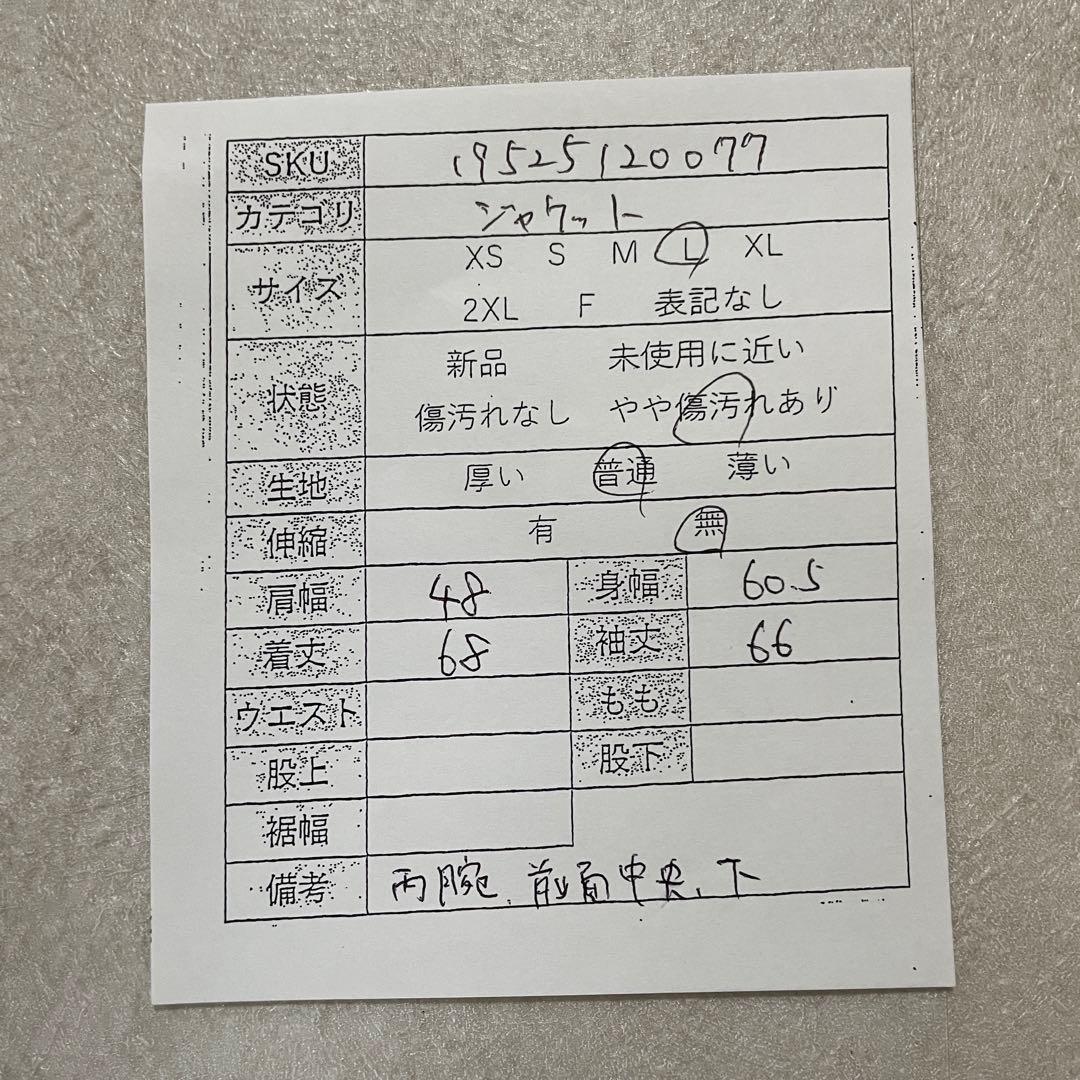 SKU 19525120077
カテゴリ ジャケット
サイズ XS S M L XL
2XL F 表記なし
状態 新品 未使用に近い
傷汚れなし やや傷汚れあり
生地 厚い 普通 薄い
伸縮 有 無
肩幅 48 身幅 60.5
着丈 68 袖丈 66
ウエスト もも
股上 股下
裾幅
備考 両腕、前面中央、下